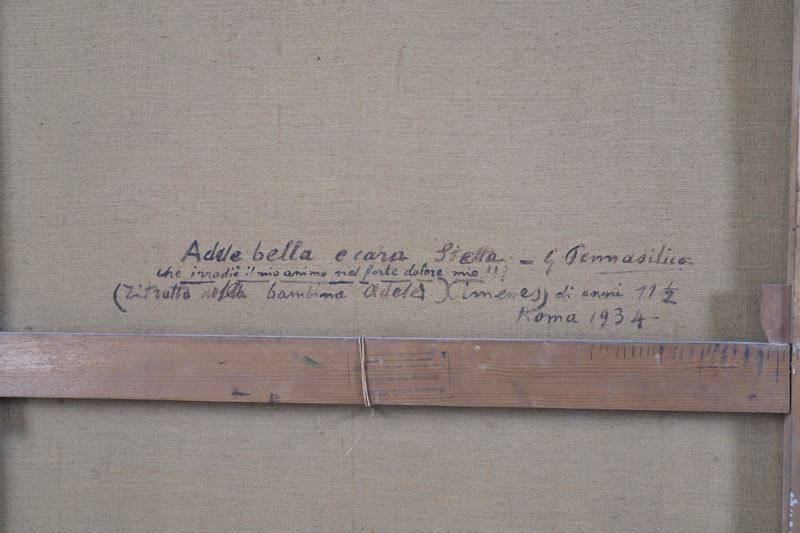 Adele bella e cara Stella - G Pennasilico
che irradiò il mio animo nel forte dolore mio !!!
(ritratto della bambina Adele Ximenes) di anni 11 ½
Roma 1934 -